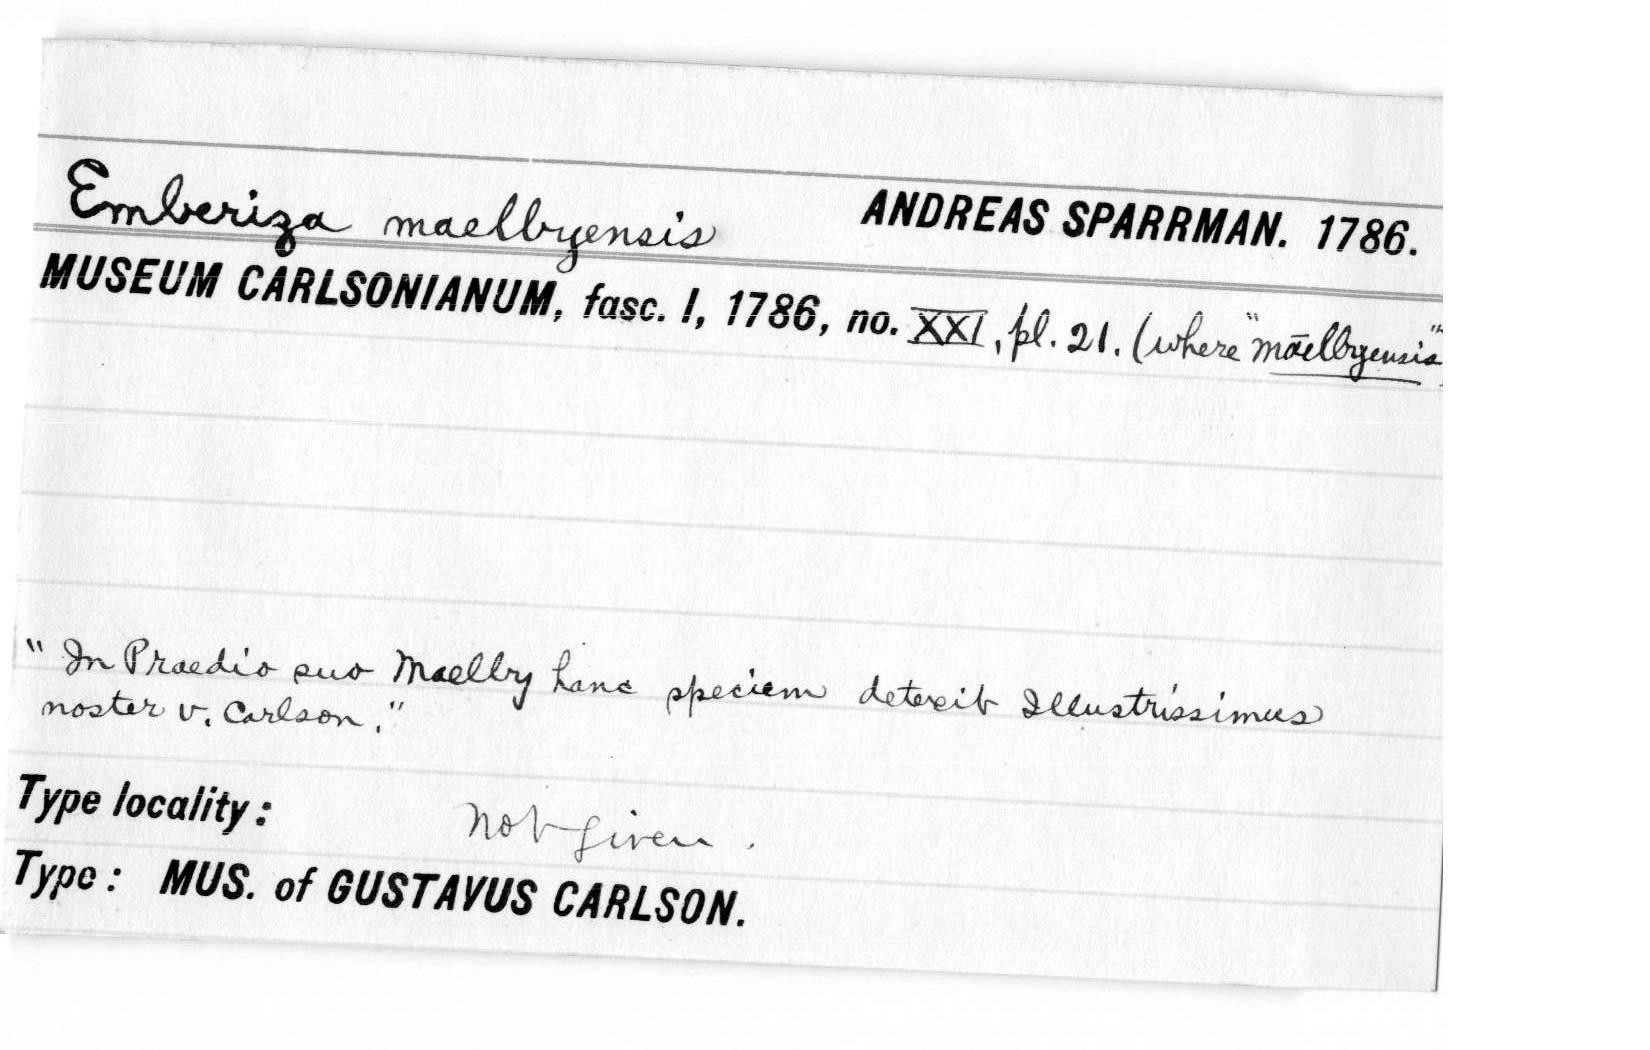 Emberiza maelbyensis ANDREAS SPARRMAN. 1786.
MUSEUM CARLSONIANUM, fasc. I, 1786, no. XXI, pl. 21. (where "mäelbyensis"
"In Praedio suo Maelby hanc speciem detexit Illustrissimus
noster v. Carlson."
Type locality: not given.
Type: MUS. of GUSTAVUS CARLSON.